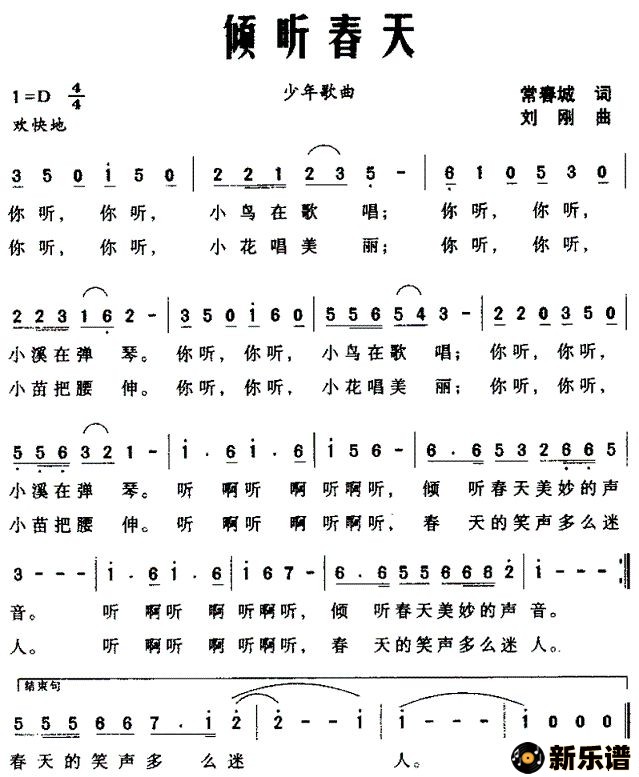 倾听春天
1=D 4/4 少年歌曲 常春城 词
欢快地 刘刚 曲
3 5 0 i 5 0 | 2 2 1 2 3 5 - | 6 1 0 5 3 0 |
你听，你听，小鸟在歌唱；你听，你听，
你听，你听，小花唱美丽；你听，你听，
2 2 3 1 6 2 - | 3 5 0 i 6 0 | 5 5 6 5 4 3 - | 2 2 0 3 5 0 |
小溪在弹琴。你听，你听，小鸟在歌唱；你听，你听，
小苗把腰伸。你听，你听，小花唱美丽；你听，你听，
5 5 6 3 2 1 - | i . 6 i . 6 | i 5 6 - | 6 . 6 5 3 2 6 6 5 |
小溪在弹琴。听啊听啊听啊听，倾听春天美妙的声
小苗把腰伸。听啊听啊听啊听，春天的笑声多么迷
3 - - - | i . 6 i . 6 | i 6 7 - | 6 . 6 5 5 6 6 6 2 | i - - - :||
音。听啊听啊听啊听，倾听春天美妙的声音。
人。听啊听啊听啊听，春天的笑声多么迷人。
结束句
5 5 5 6 6 7 . i 2 | 2 - - i | i - - - | i 0 0 0 ||
春天的笑声多么迷人。
新乐谱